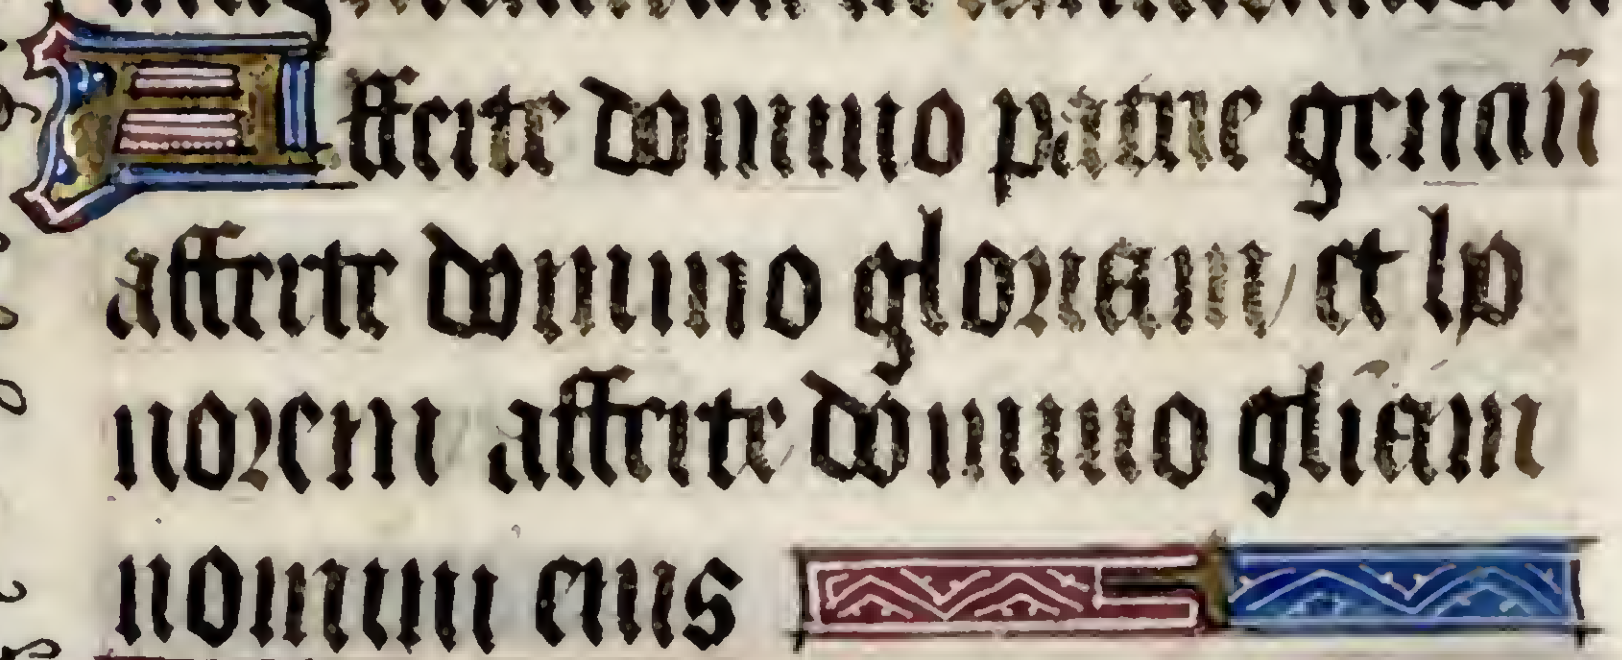 Afferte domino patrie gentiū
afferte domino gloriam / et ho
norem / afferte domino gl̄iam
nomini eius